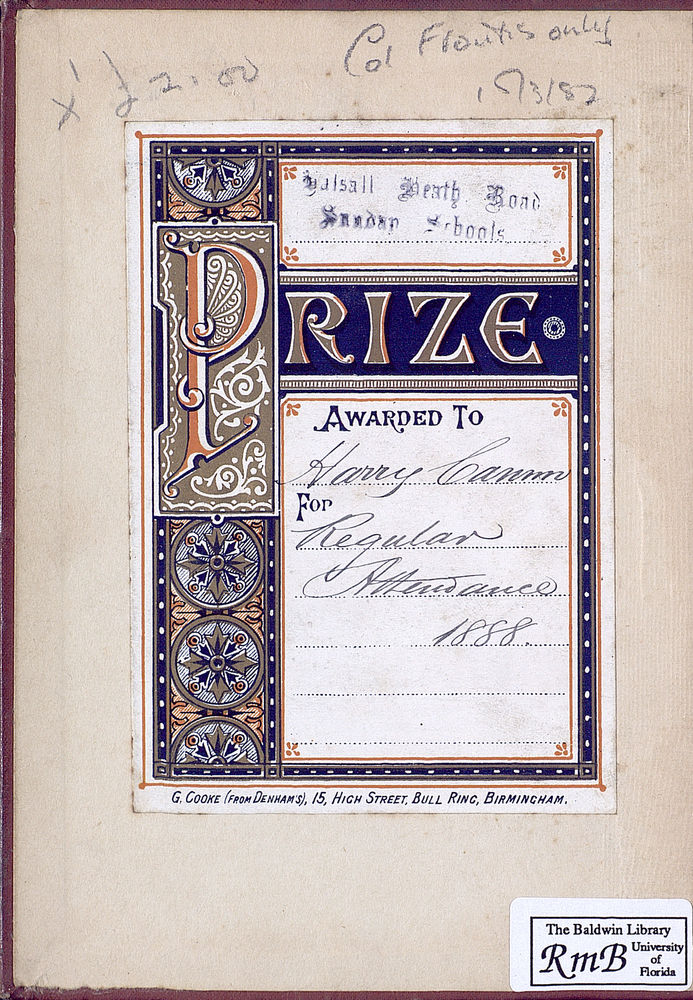 x £2.00
Col Frontis only
Balsall Heath Road
Sunday Schools
PRIZE
AWARDED TO
Harry Cannon
For
Regular
Attendance
1888.
G. COOKE (FROM DENHAM'S), 15, HIGH STREET, BULL RING, BIRMINGHAM.
The Baldwin Library
RmB University
of
Florida